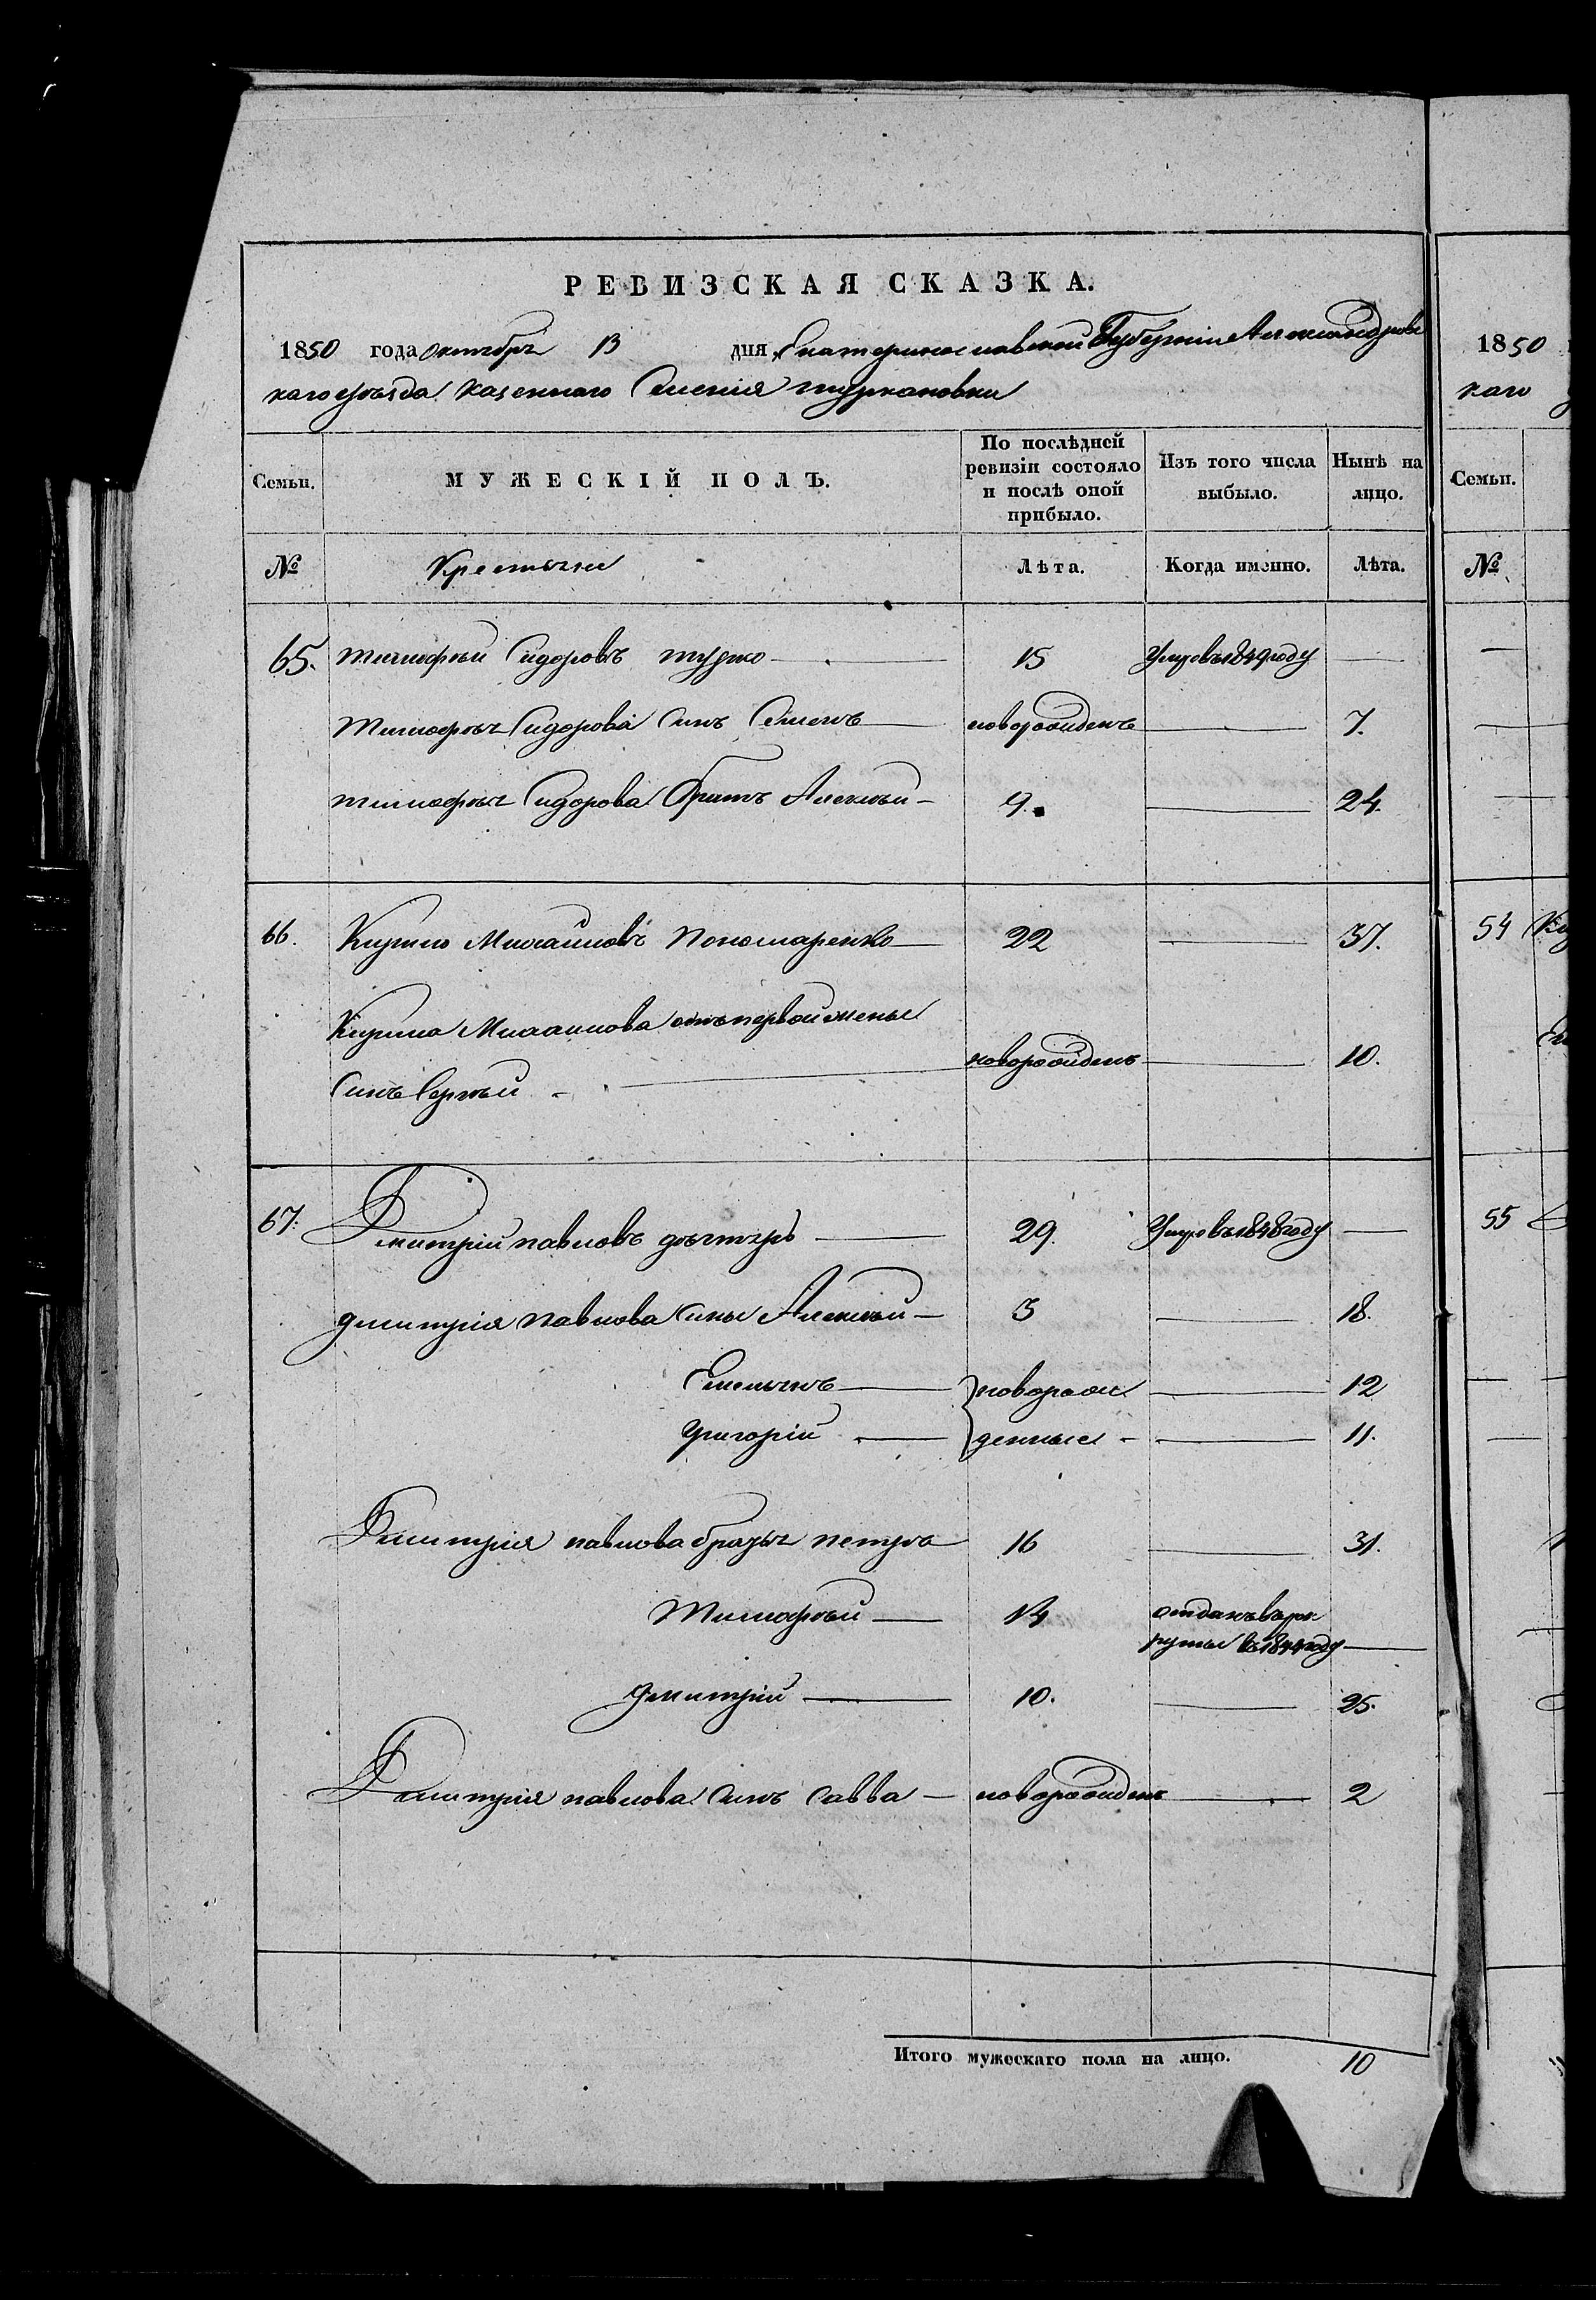 РЕВИЗСКАЯ СКАЗКА.
1850 года октября 13 дня, Екатеринославской Губернии Александровс
каго уезда казеннаго Селения туркановки
Семьи. МУЖЕСКІЙ ПОЛЪ. По послѣдней ревизіи состояло и послѣ оной прибыло. Изъ того числа выбыло. Нынѣ на лицо.
№ Крестьяне Лѣта. Когда именно. Лѣта.
65. тимофей Сидоровъ турко 15 Умровъ 1849 году —
тимофея Сидорова Синъ Семенъ новорожденъ — 7.
тимофея Сидорова Братъ Алексей 9. — 24.
66. Кирило Михайловъ Пономаренко 22 — 37.
Кирила Михаилова отъ первой жены
Синъ Сергей новорожденъ — 10.
67. Дмитрій павловъ 29. Умровъ 1848 году —
дмитрія павлова Сины Алексей 3 — 18.
Емельянъ новорож — 12
Григорій денные — 11.
Дмитрія павлова братья петръ 16 — 31.
Тимофей 14 отданъ въ рек
руты въ 1844 году —
дмитрій 10. — 25.
Дмитрія павлова Синъ Савва новорожденъ — 2
Итого мужескаго пола на лицо. 10
1850
каго
Семьи.
№
54
55